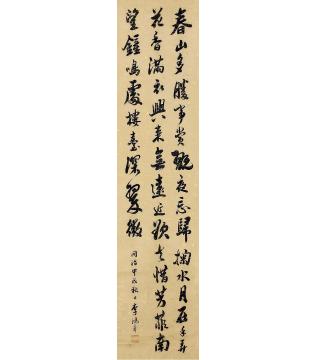 春山多勝事賞翫夜忘歸掬水月在手弄
花香滿衣興來無遠近欲去惜芳菲南
望鐘鳴處樓臺深翠微
同治甲戌秋日李鴻章